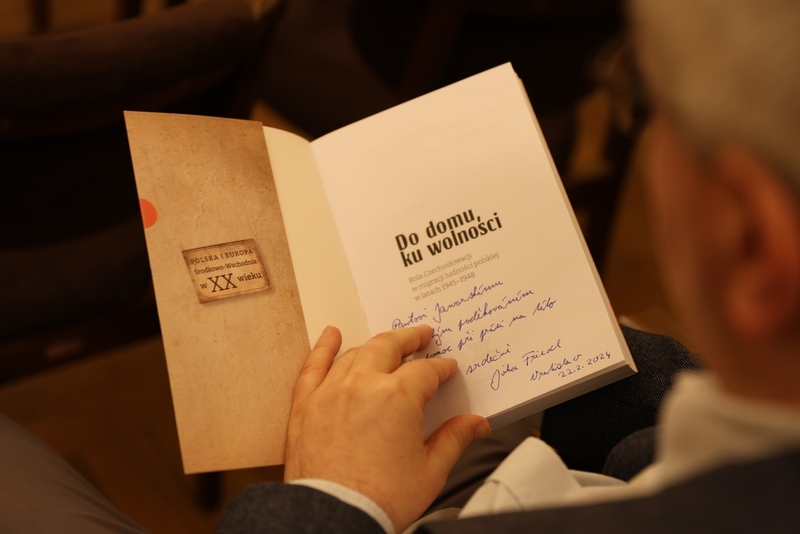 POLSKA I EUROPA
Środkowo-Wschodnia
w XX wieku
Do domu,
ku wolności
Rola Czechosłowacji
w migracji ludności polskiej
w latach 1945–1948
Pavlovi Jaworskému
poděkováním
při práci na této
srdečně
Jiří Friedl
Vratislav
22.2.2024